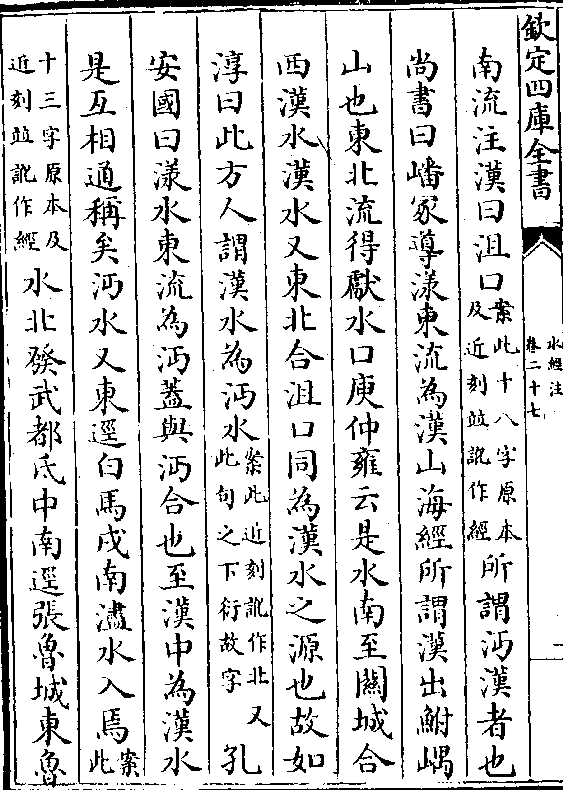 欽定四庫全書
水經注
卷二十七
一
南流注漢曰沮口案此十八字原本及近刻竝訛作經所謂沔漢者也
尚書曰嶓冢導漾東流為漢山海經所謂漢出鮒嵎
山也東北流得獻水口庾仲雍云是水南至關城合
西漢水漢水又東北合沮口同為漢水之源也故如
淳曰此方人謂漢水為沔水案此近刻訛作北又此句之下衍故字孔
安國曰漾水東流為沔蓋與沔合也至漢中為漢水
是互相通稱矣沔水又東逕白馬戍南濜水入焉案此
十三字原本及近刻竝訛作經水北發武都氐中南逕張魯城東魯